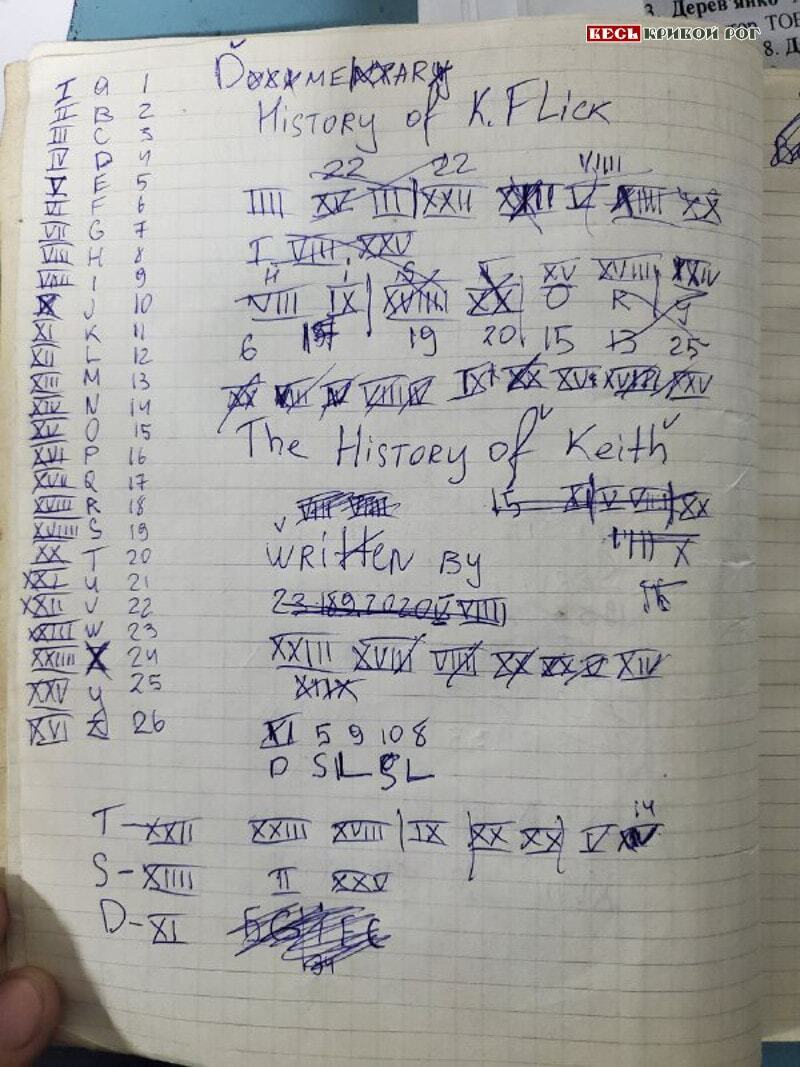 3. Дерев'янко
ТОВ
ВЕСЬ КРИВОЙ РОГ
8. Д
DOKUMENTARY
HISTORY of K. FLICK
I A 1
II B 2
III C 3
IV D 4
V E 5
VI F 6
VII G 7
VIII H 8
VIIII I 9
X J 10
XI K 11
XII L 12
XIII M 13
XIV N 14
XV O 15
XVI P 16
XVII Q 17
XVIII R 18
XVIIII S 19
XX T 20
XXI U 21
XXII V 22
XXIII W 23
XXIIII X 24
XXV Y 25
XXVI Z 26
22 22 VIIII
IIII XV III XXII V XX
I VIII XXV
H I S XV XVIII XXIV
VIII IX XVIIII XX O R Y
6 19 20 15 13 25
XX IV VIIII IX XX XV XVIII XXV
The HISTORY of Keith
15 XI V VIII XX
X
WRITTEN BY
23 18 9 20 20 V VIIII
XXIII XVIII VIIII XX XX V XIV
XIX
XI 5 9 10 8
D S L S L
14
T - XXII XXIII XVIII IX XX XX V
S - XIIII II XXV
D - XI